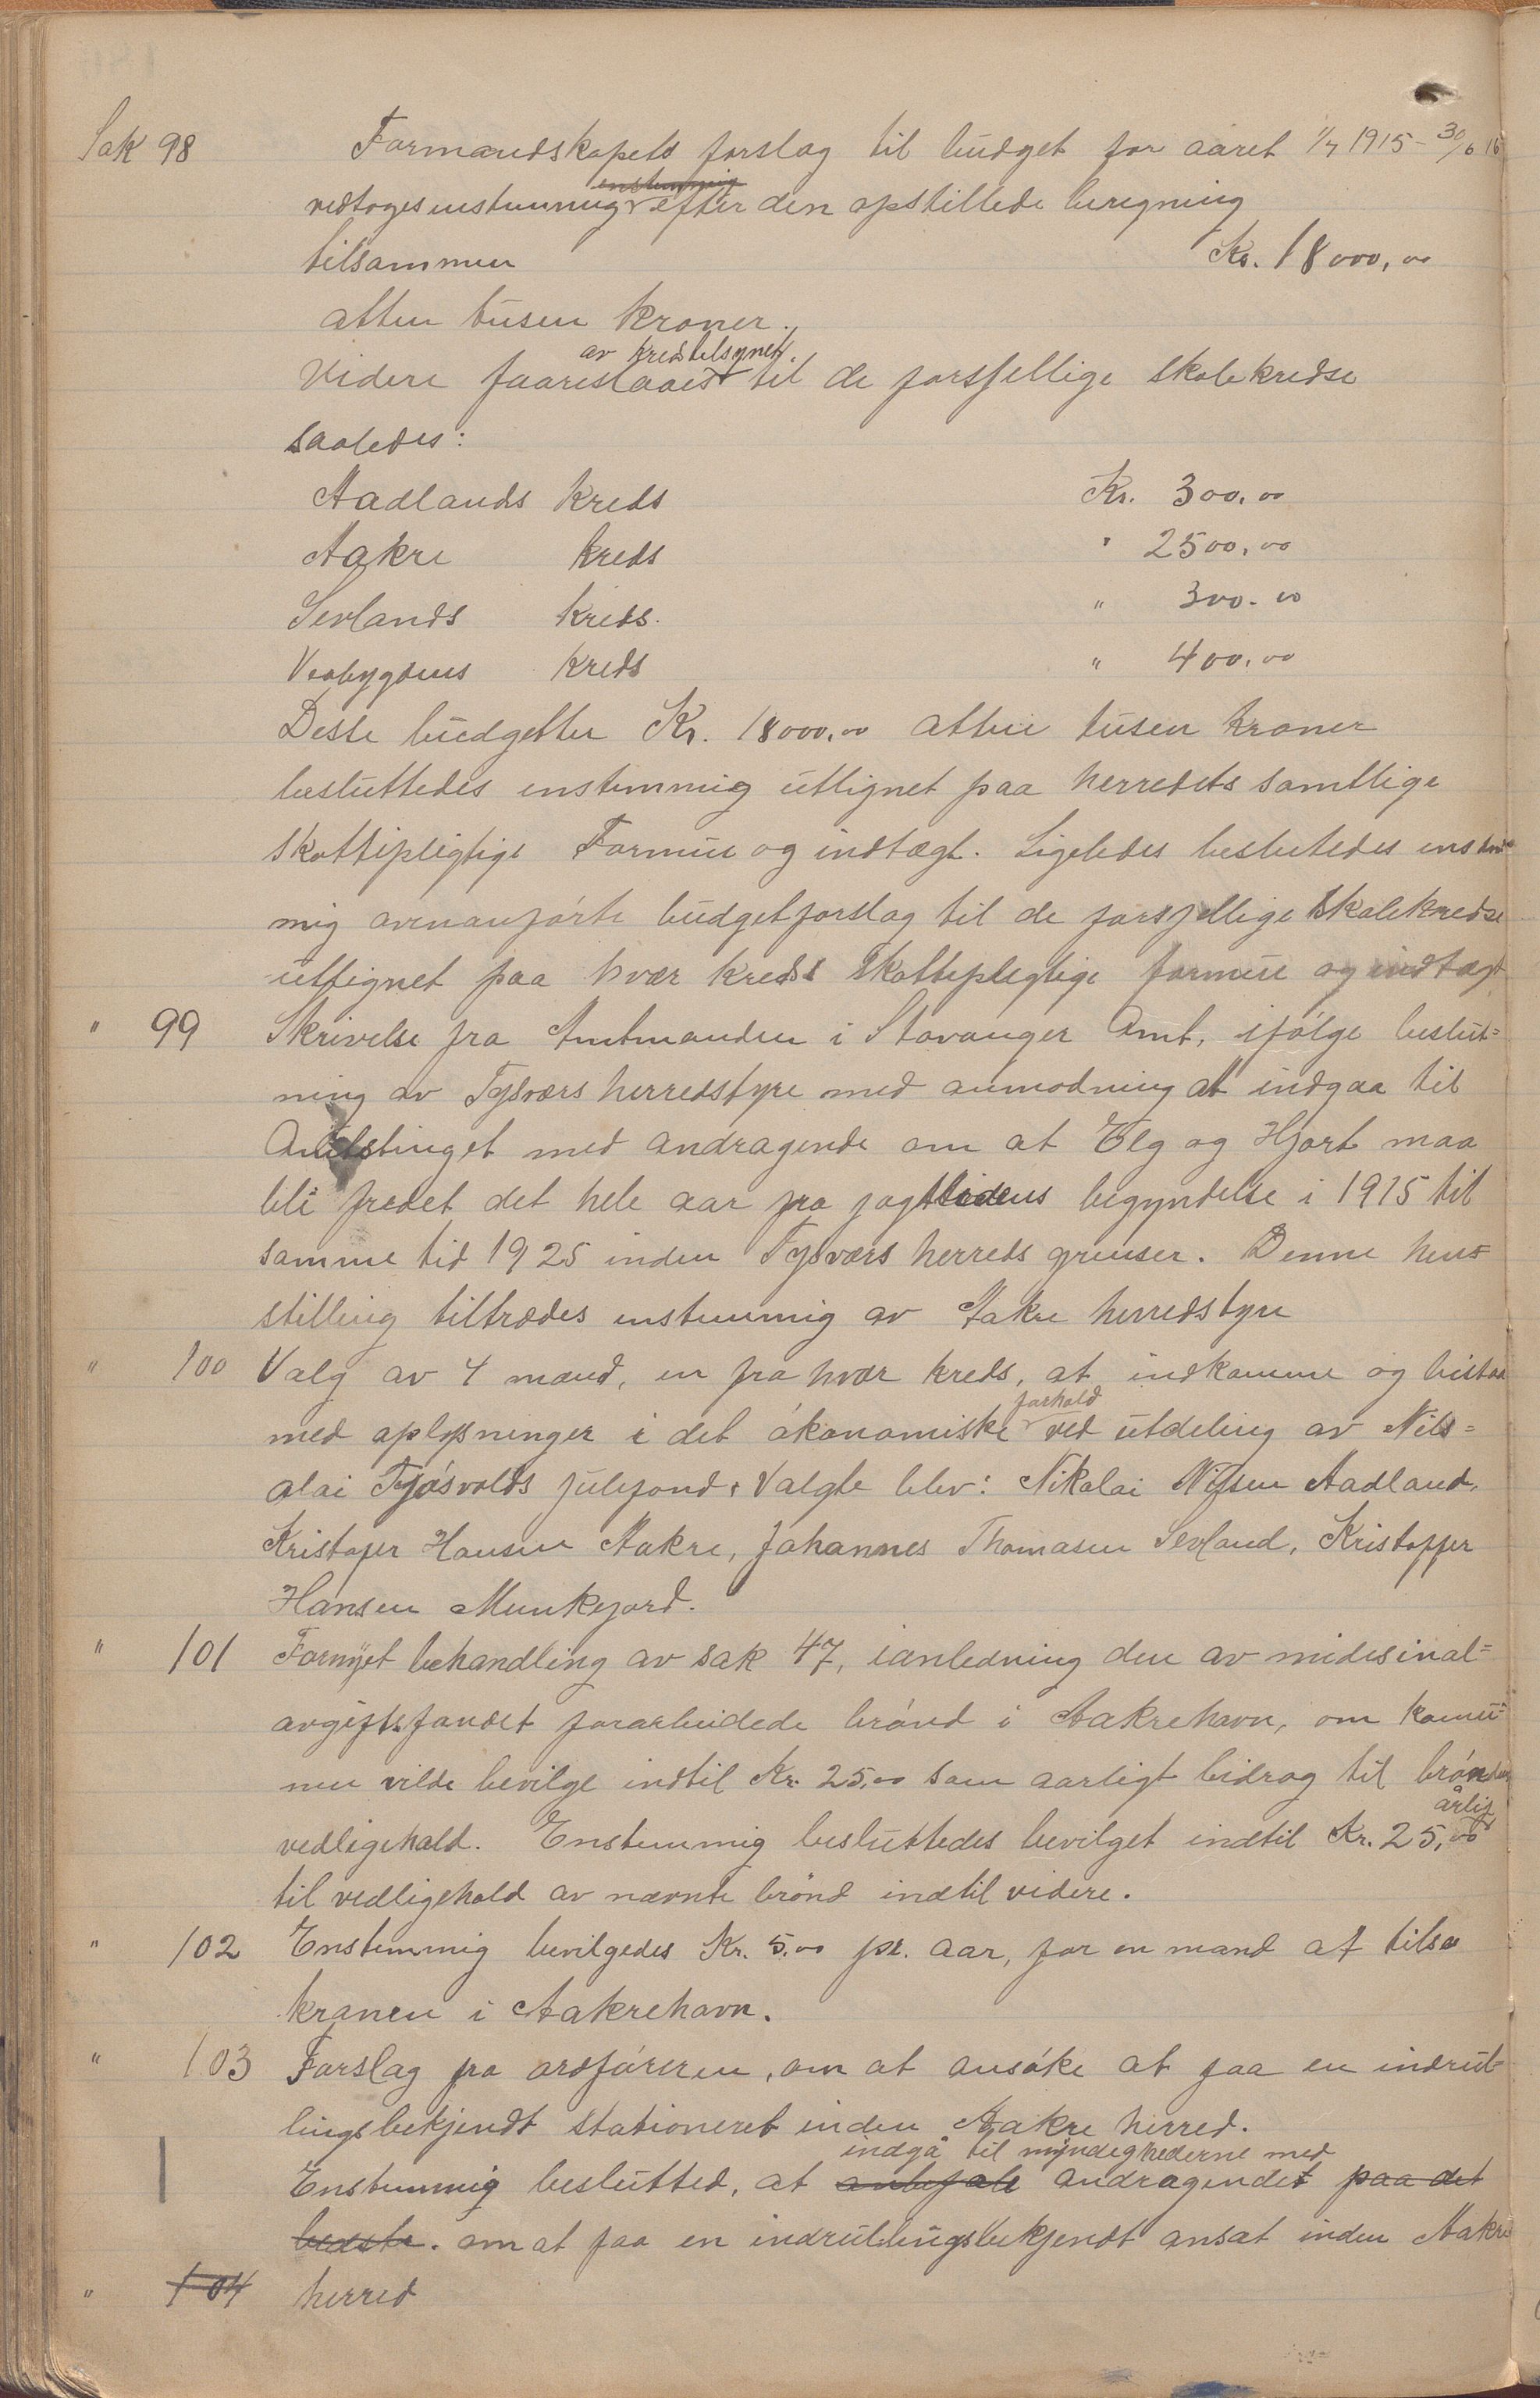 Sak 98 Formandskapets forslag til budget for aaret 1/7 1915 - 30/6 16
enstemmig
vedtoges enstemmig efter den opstillede beregning
tilsammen Kr. 18000,00
atten tusen kroner.
av kredstilsynet.
Videre foareslaaes til de forsjellige skolekredse
saaledes:
Aadlands kreds Kr. 300,00
Aakre kreds " 2500,00
Sevlands kreds. " 300.00
Veabygdens kreds " 400,00
Desse budgetter Kr. 18000,00 atten tusen kroner
besluttedes enstemmig utlignet paa herredets samtlige
skattepligtige Formue og indtægt. Ligeledes beslutedes enstem
mig ovenanførte budgetforslag til de forsjellige skolekredse
utlignet paa hvær kreds skattepligtige formue og indtægt
" 99 Skrivelse fra Amtmanden i Stavanger Amt, ifølge beslut=
ning av Tysværs herredstyre med anmodning at indgaa til
Amtstinget med andragende om at Elg og Hjort maa
bli fredet det hele aar fra jagttidens begyndelse i 1915 til
samme tid 1925 inden Tysværs herreds grenser. Denne hen=
stilling tiltrædes enstemmig av Aakre herredstyre
" 100 Valg av 4 mænd, en fra hvær kreds, at indkomme og bistaa
forhold
med oplysninger i det økonomiske ved utdeling av Nils=
olai Tjøsvolds julefond. Valgte blev: Nikolai Nilsen Aadland,
Kristofer Hansen Aakre, Johannes Thomasen Sevland, Kristoffer
Hansen Munkejord.
" 101 Fornyet behandling av sak 47, ianledning den av midesinal=
avgiftsfondet forarbeidede brønd i Aakrehavn, om komu=
nen vilde bevilge indtil Kr. 25,00 som aarligt bidrag til brøndens
årlig
vedligehold. Enstemmig besluttedes bevilget indtil Kr. 25,00
til vedligehold av nævnte brønd indtil videre.
" 102 Enstemmig bevilgedes Kr. 5,00 pr. aar, for en mand at tilse
kranen i Aakrehavn.
" 103 Forslag fra ordføreren, om at ansøke at faa en indrul=
lingsbetjendt stationeret inden Aakre herred.
indgå til myndighederne med
Enstemmig beslutted, at anbefale andragendet paa det
bedste. om at faa en indrullingsbetjendt ansat inden Aakre
" 104 herred